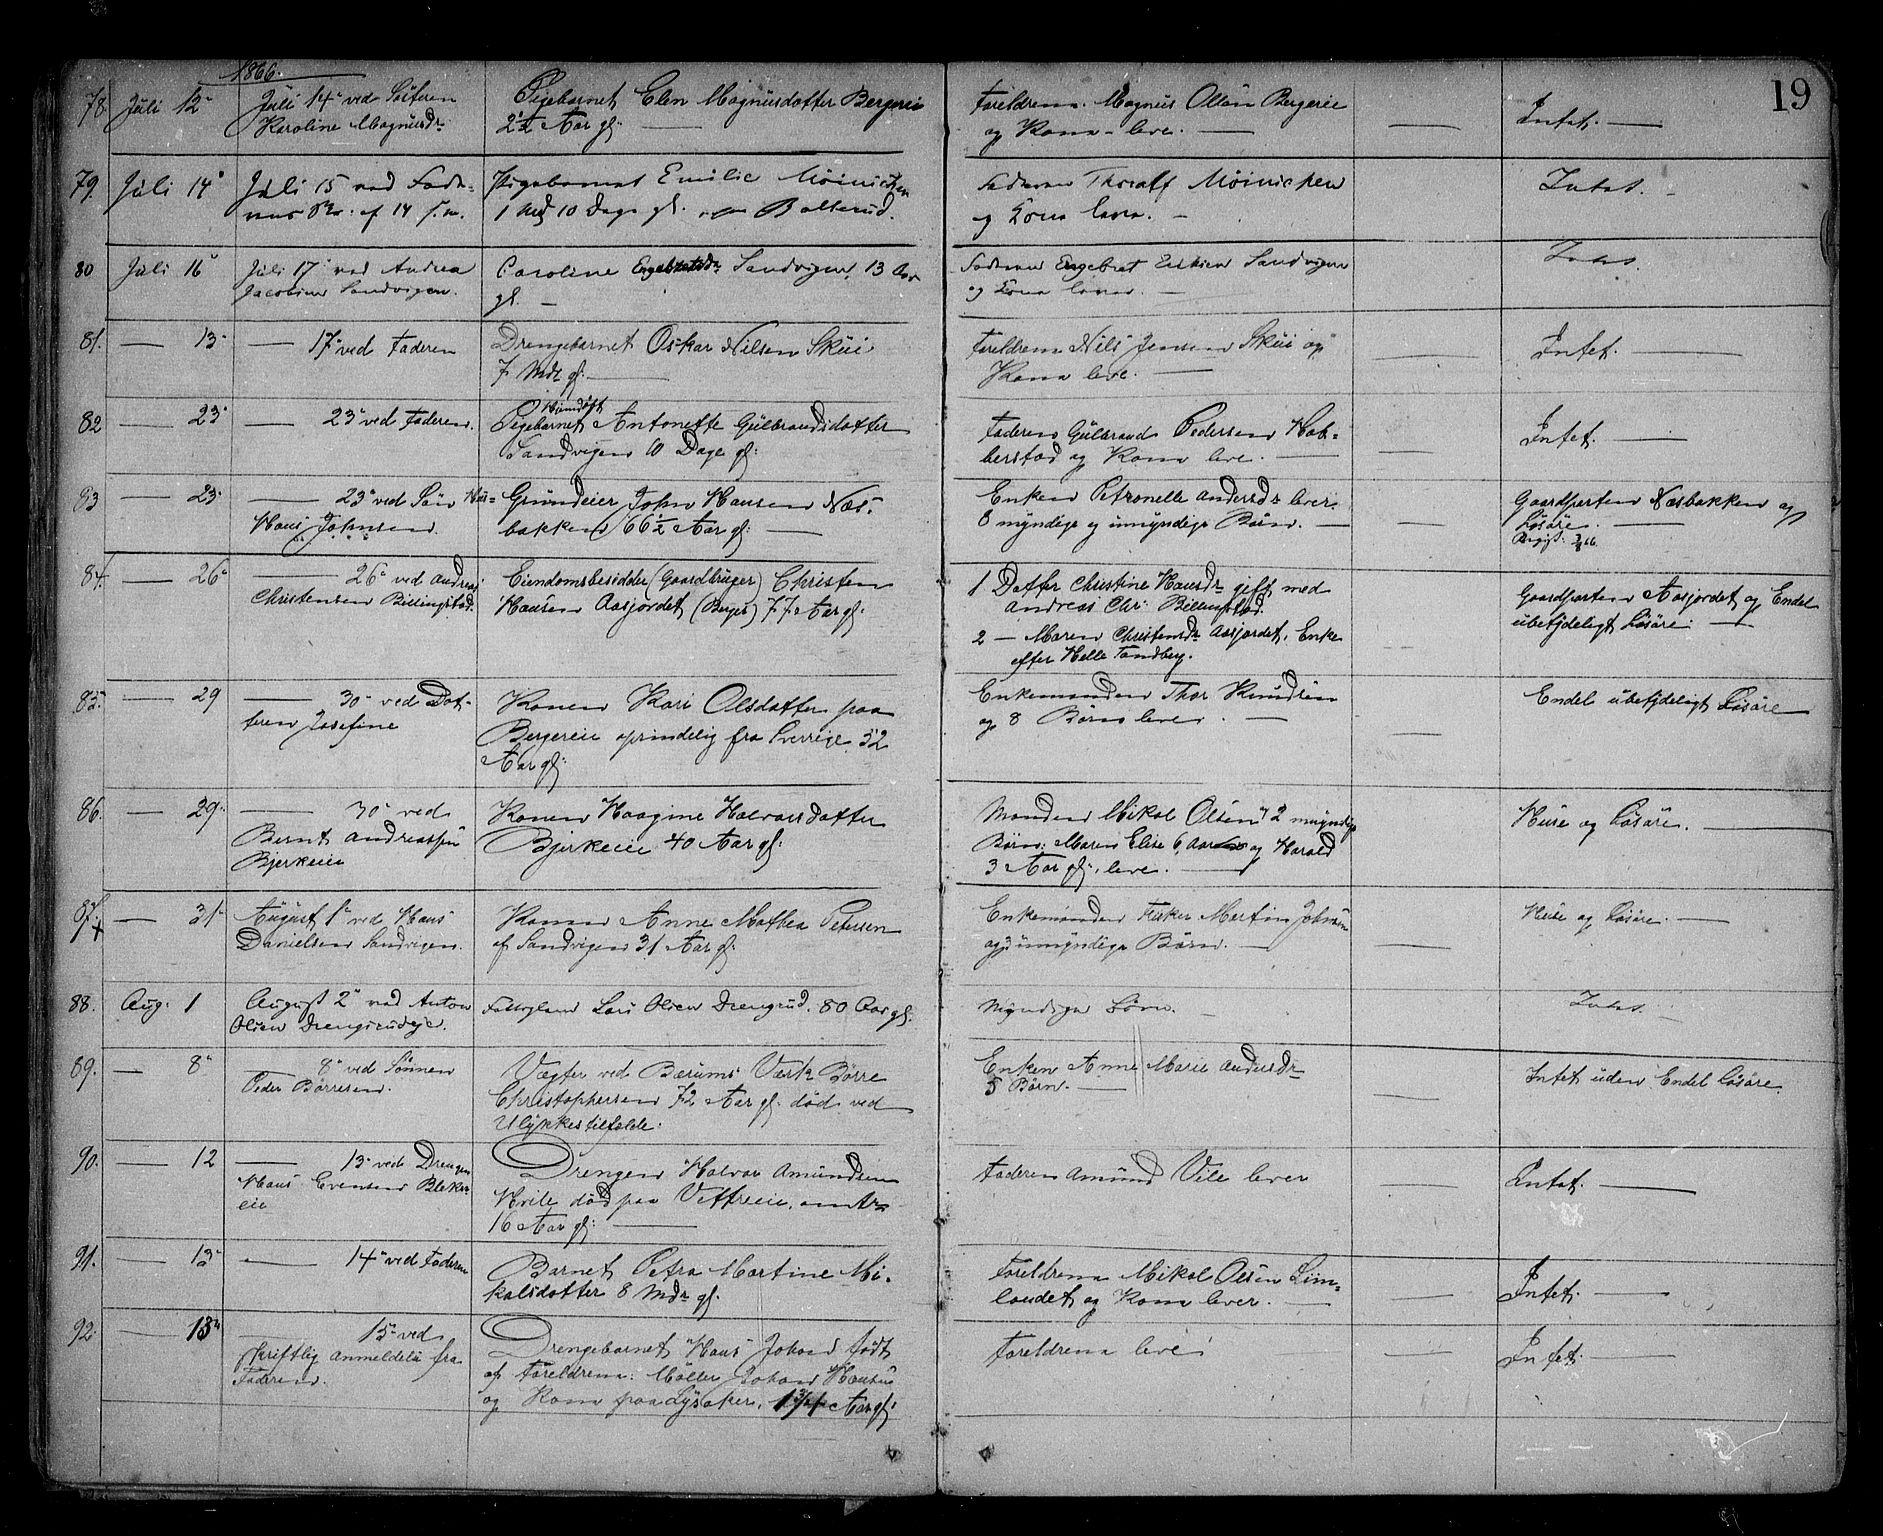 19
1866.
78. Juli 12 Juli 14 ved Søsteren Pigebarnet Elen Magnusdatter Bergeeie Foreldrene Magnus Olsen Bergeeie Intet.
Karoline Magnusdr 2½ Aar gl. og Kone leve.
79. Juli 14 Juli 15 ved Fade- Pigebarnet Emilie Møinichen Faderen Thoralf Møinichen Intet.
rens Br. af 14 s.m. 1 Md 10 Dage gl. Ballerud. og Kone lever.
80 Juli 16 Juli 17 ved Andrea Caroline Engebretsdr Sandvigen 13 Aar Faderen Engebret Eriksen Sandvigen Intet.
Jacobsen Sandvigen. gl. og Kone lever.
81. 13 17 ved Faderen Drengebarnet Oskar Nilsen Skui Foreldrene Nils Jensen Skui og Intet.
7 Mdr gl. Kone leve.
82 23 23 ved Faderen. Pigebarnet Hjemdøbt Antonette Gulbrandsdatter Faderen Gulbrand Pedersen Hab- Intet.
Sandvigen 10 Dage gl: berstad og Kone leve.
83 23 23 ved Søn Grundeier John Hansen Næs- Enken Petronelle Andersdr lever Gaardparten Næsbakken og
Hans Johnsen. bakken 66½ Aar gl: 8 myndige og umyndige Børn. Løsøre.
84. 26 26 ved Andreas Eiendomsbesidder (Gaardbruger) Christen 1 Datter Christine Hansdr gift med Gaardparten Aasjordet og Endel
Christensen Billingstad. Hansen Aasjordet (Berger) 77 Aar gl: Andreas Chr: Billingstad. ubetydeligt Løsøre.
2 — Maren Christensdr Aasjordet. Enke
efter Helle Tandberg.
85. 29 30 ved Dat- Konen Kari Olsdatter paa Enkemanden Thor Knudsen Endel ubetydeligt Løsøre
teren Josefine Bergereie oprindelig fra Sverrige 52 og 8 Børn lever.
Aar gl:
86. 29 30 ved Konen Haagine Halvorsdatter Manden Mikal Olsen 2 umyndige Huse og Løsøre.
Bernt Andreassen Bjerkeeie 40 Aar gl: Børn: Maren Elise 6 Aar og Harald
Bjerkeeie 3 Aar gl., leve.
87. 31 August 1 ved Hans Konen Anne Mathea Petersen Enkemanden Fisker Martin Johnsen Huse og Løsøre.
Danielsen Sandvigen. af Sandvigen 31 Aar gl: og 3 umyndige Børn.
88. Aug: 1 August 2 ved Anton Lars Olsen Drengsrud. 80 Aar gl. Myndige Børn. Intet.
Olsen Drengsrudeje.
89. 8 8 ved Sønnen Vægter ved Bærums Værk Børre Enken Anne Marie Andersdr Intet uden Endel Løsøre
Peder Børresen. Christophersen 72 Aar gl. død ved 5 Børn.
Ulykkestilfælde.
90. 12 13 ved Drengen Drengen Halvor Amundsen Faderen Amund Vile lever Intet.
Hans Evensen Bleker- Hvile død paa Vettreeie, omtr
eie 16 Aar gl:
91. 13 14 ved Faderen Barnet Petra Martine Mi- Foreldrene Mikal Olsen Lim- Intet.
kalsdatter 8 Mdr gl. landet og Kone lever.
92. 13 15 ved Drengebarnet Hans Johan født Foreldrene leve Intet.
skriftlig Anmeldelse fra af Foreldrene: Møller Johan Hansen
Faderen. og Kone paa Lysaker, Aar gl: